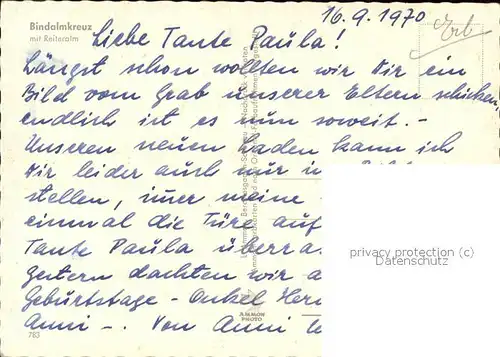 Bindalmkreuz
mit Reiteralm
16.9.1970
Erl.
Liebe Tante Paula!
Längst schon wollten wir Dir ein
Bild vom Grab unserer Eltern schicken,
endlich ist es nun soweit. -
Unseren neuen Laden kann ich
Dir leider auch nur in
stellen, imer meine
einmal die Türe auf
Tante Paula überra
gestern dachten wir a
Geburtstage - Onkel Her
Anni -. Von Anni
privacy protection (c)
Datenschutz
AMMON
PHOTO
783